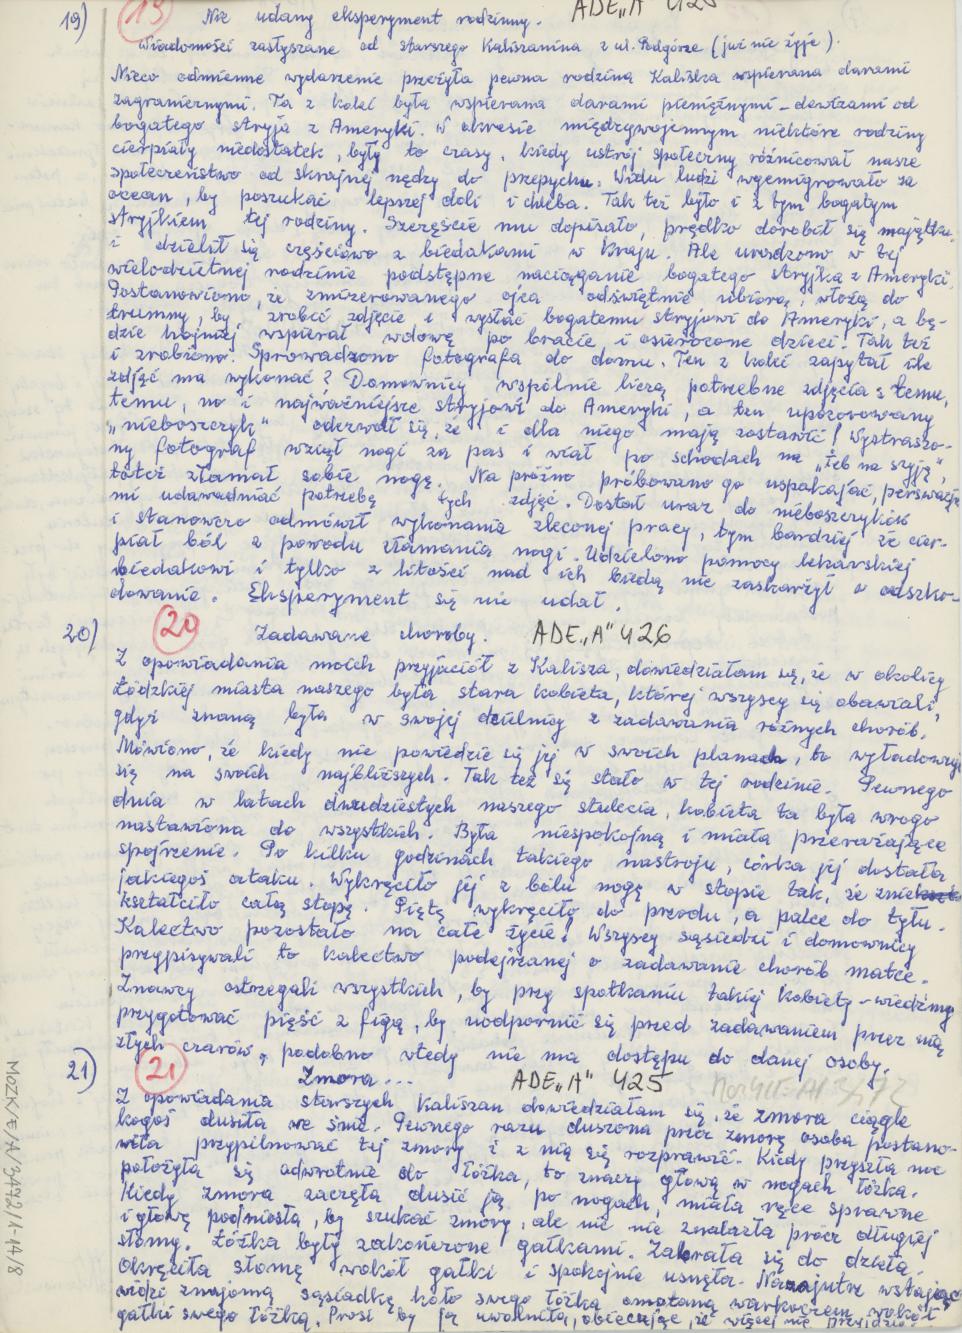 19) 19 Nie udany eksperyment rodzinny. ADE„A" 428
Wiadomości zasłyszane od starszego Kaliszanina z ul. Podgórze (już nie żyje).
Nieco odmienne wydarzenie przeżyła pewna rodzina Kaliska wspierana darami
zagranicznymi. Ta z kolei była wspierana darami pieniężnymi – dewizami od
bogatego stryja z Ameryki. W okresie międzywojennym niektóre rodziny
cierpiały niedostatek, były to czasy, kiedy ustrój społeczny różnicował nasze
społeczeństwo od skrajnej nędzy do przepychu. Wielu ludzi wyemigrowało za
ocean, by poszukać lepszej doli i chleba. Tak też było i z tym bogatym
stryjkiem tej rodziny. Szczęście mu dopisało, prędko dorobił się majątku
i dzielił się częściowo z biedakami w Kraju. Ale uradzono w tej
wielodzietnej rodzinie podstępne naciąganie bogatego stryjka z Ameryki.
Postanowiono, że zmizerowanego ojca odświętnie ubiorą, włożą do
trumny, by zrobić zdjęcie i wysłać bogatemu stryjowi do Ameryki, a bę-
dzie hojniej wspierał wdowę po bracie, i osierocone dzieci. Tak też
i zrobiono. Sprowadzono fotografa do domu. Ten z kolei zapytał ile
zdjęć ma wykonać? Domownicy wspólnie liczą potrzebne zdjęcia: temu,
temu, no i najważniejsze stryjowi do Ameryki, a ten upozorowany
„nieboszczyk" oderwał się, że i dla niego mają zostawić! Wystraszo-
ny fotograf wziął nogi za pas i wiał po schodach na „łeb na szyję",
toteż złamał sobie nogę. Na próżno próbowano go uspakajać, perswazja
mi udawadniać potrzebę tych zdjęć. Dostał uraz do nieboszczyków
i stanowczo odmówił wykonania zleconej pracy, tym bardziej że cier-
piał ból z powodu złamania nogi. Udzielono pomocy lekarskiej
biedakowi i tylko z litości nad ich biedą nie zaskarżył o odszko-
dowanie. Eksperyment się nie udał.
20) 20 Zadawane choroby. ADE„A" 426
Z opowiadania moich przyjaciół z Kalisza, dowiedziałam się, że w okolicy
Łódzkiej miasta naszego była stara kobieta, której wszyscy się obawiali,
gdyż znaną była w swojej dzielnicy z zadawania różnych chorób.
Mówiono, że kiedy nie powiedzie się jej w swoich planach, to wyładowuje
się na swoich najbliższych. Tak też się stało w tej rodzinie. Pewnego
dnia w latach dwudziestych naszego stulecia, kobieta ta była wrogo
nastawiona do wszystkich. Była niespokojną i miała przerażające
spojrzenie. Po kilku godzinach takiego nastroju, córka jej dostała
jakiegoś ataku. Wykręciło jej z bólu nogę w stopie tak, że znie
kształciło całą stopę. Piętę wykręciło do przodu, a palce do tyłu.
Kalectwo pozostało na całe życie! Wszyscy sąsiedzi i domownicy
przypisywali to kalectwo podejrzanej o zadawanie chorób matce.
Znawcy ostrzegali wszystkich, by przy spotkaniu takiej kobiety – wiedźmy
przygotować pięść z figą, by uodpornić się przed zadawaniem przez nią
złych czarów, podobno wtedy nie ma dostępu do danej osoby.
21) 21 Zmora... ADE„A" 425
Z opowiadania starszych Kaliszan dowiedziałam się, że zmora ciągle
kogoś dusiła we śnie. Pewnego razu duszona przez zmorę osoba postano-
wiła przypilnować tej zmory i z nią się rozprawić. Kiedy przyszła noc
położyła się odwrotnie do łóżka, to znaczy głową w nogach łóżka.
Kiedy zmora zaczęła dusić ją po nogach, miała ręce sprawne
i głowę podniosła, by szukać zmory, ale nic nie znalazła prócz długiej
słomy. Łóżka były zakończone gałkami. Zabrała się do dzieła.
Okręciła słomę wokół gałki i spokojnie usnęła. Nazajutrz wstając
widzi znajomą sąsiadkę koło swego łóżka omotaną warkoczem wokół
gałki swego łóżka. Prosi by ją uwolniła, obiecując, że więcej nie przyjdzie
MOZK/E/A/3472/1-14/8